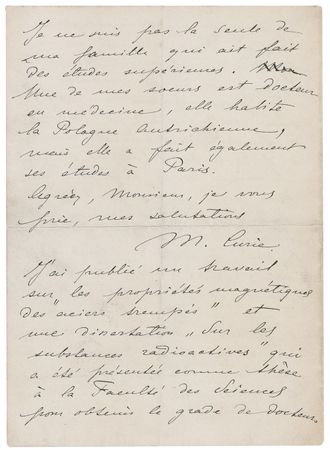 Je ne suis pas la seule de
ma famille qui ait fait
des études supérieures.
Une de mes soeurs est docteur
en medecine, elle habite
la Pologne Autrichienne,
mais elle a fait également
ses études à Paris.
Agréez, Monsieur, je vous
prie, mes salutations
M. Curie.
J'ai publié un travail
sur „les propriétés magnétiques
des aciers trempés" et
une dissertation „Sur les
substances radioactives" qui
a été présentée comme thèse
à la Faculté des Sciences
pour obtenir le grade de docteur.